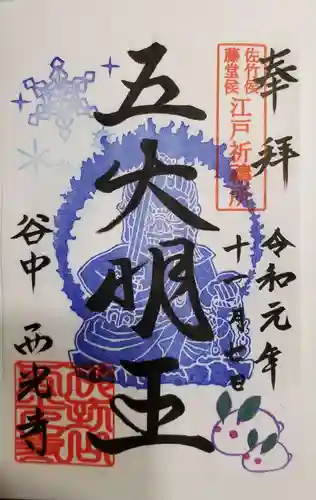 奉拝
佐竹侯
藤堂侯
江戸祈禱所
令和元年
十一月廿日
五大明王
谷中 西光寺